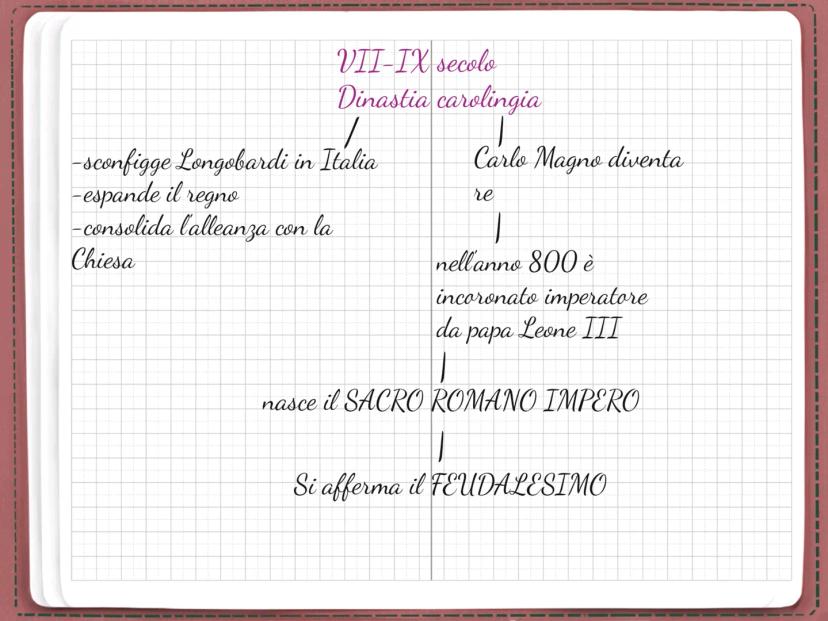 VII-IX secolo
Dinastia carolingia
-sconfigge Longobardi in Italia
-espande il regno
-consolida l'alleanza con la
Chiesa
Carlo Magno diventa
re
nell'anno 800 è
incoronato imperatore
da papa Leone III
nasce il SACRO ROMANO IMPERO
Si afferma il FEUDALESIMO